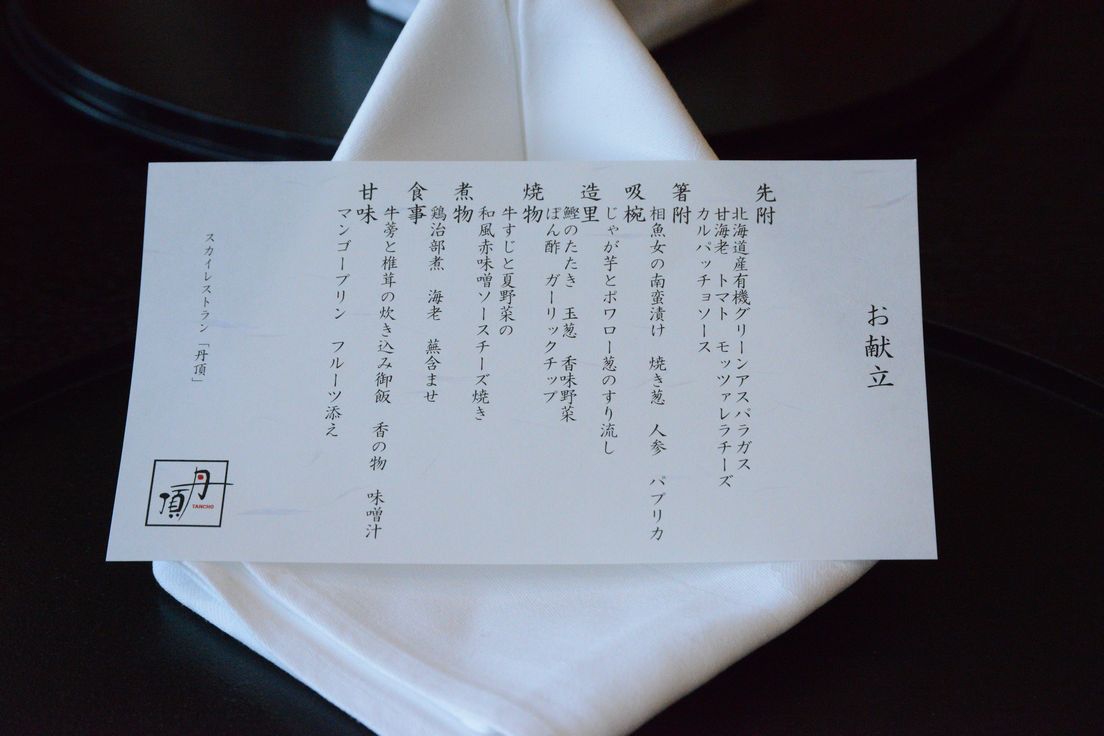 お献立
先附
北海道産有機グリーンアスパラガス
甘海老　トマト　モッツァレラチーズ
カルパッチョソース
箸附
相魚女の南蛮漬け　焼き葱　人参　パプリカ
吸椀
じゃが芋とポワロー葱のすり流し
造里
鰹のたたき　玉葱　香味野菜
ぽん酢　ガーリックチップ
焼物
牛すじと夏野菜の
和風赤味噌ソースチーズ焼き
煮物
鶏治部煮　海老　蕪含ませ
食事
牛蒡と椎茸の炊き込み御飯　香の物　味噌汁
甘味
マンゴープリン　フルーツ添え
スカイレストラン「丹頂」
丹頂
TANCHO